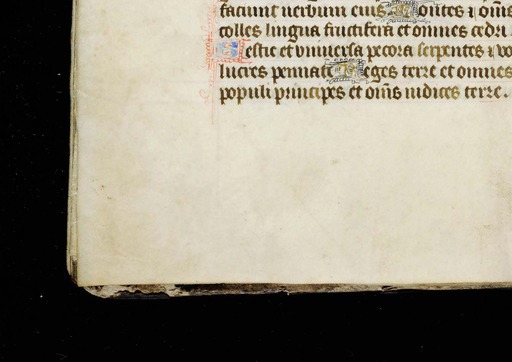 faciunt uerbum eius Montes et om̅s
colles lingua fructifera et omnes cedri
Bestie et vniuersa pecora serpentes et vo
lucres pennate Reges terre et omnes
populi principes et om̅s iudices terre.